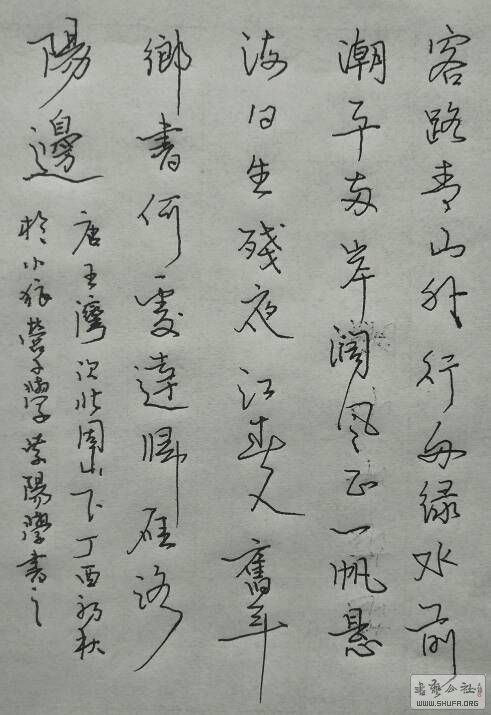 客路青山外行舟绿水前
潮平两岸阔风正一帆懸
海日生殘夜江春入舊年
鄉書何處達歸雁洛
陽邊
唐王灣次北固山下丁酉初秋
於小 營子 陽學書之
書藝公社
WWW.SHUFA.ORG